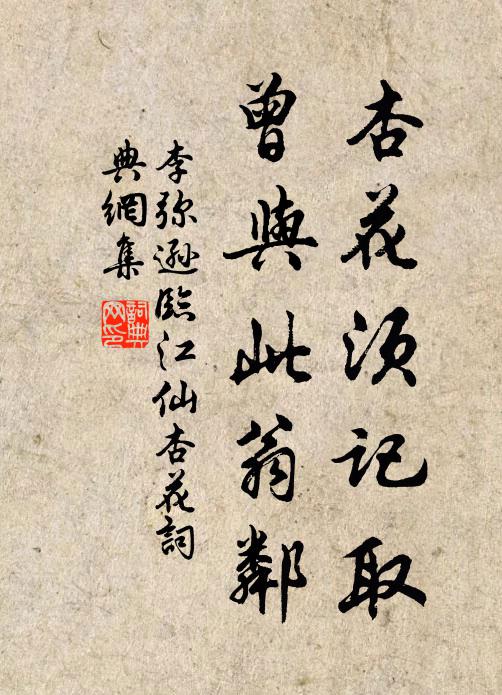 杏花须记取
曾與此翁鄰
李弥遜臨江仙杏花詞
典網集
詞典网印